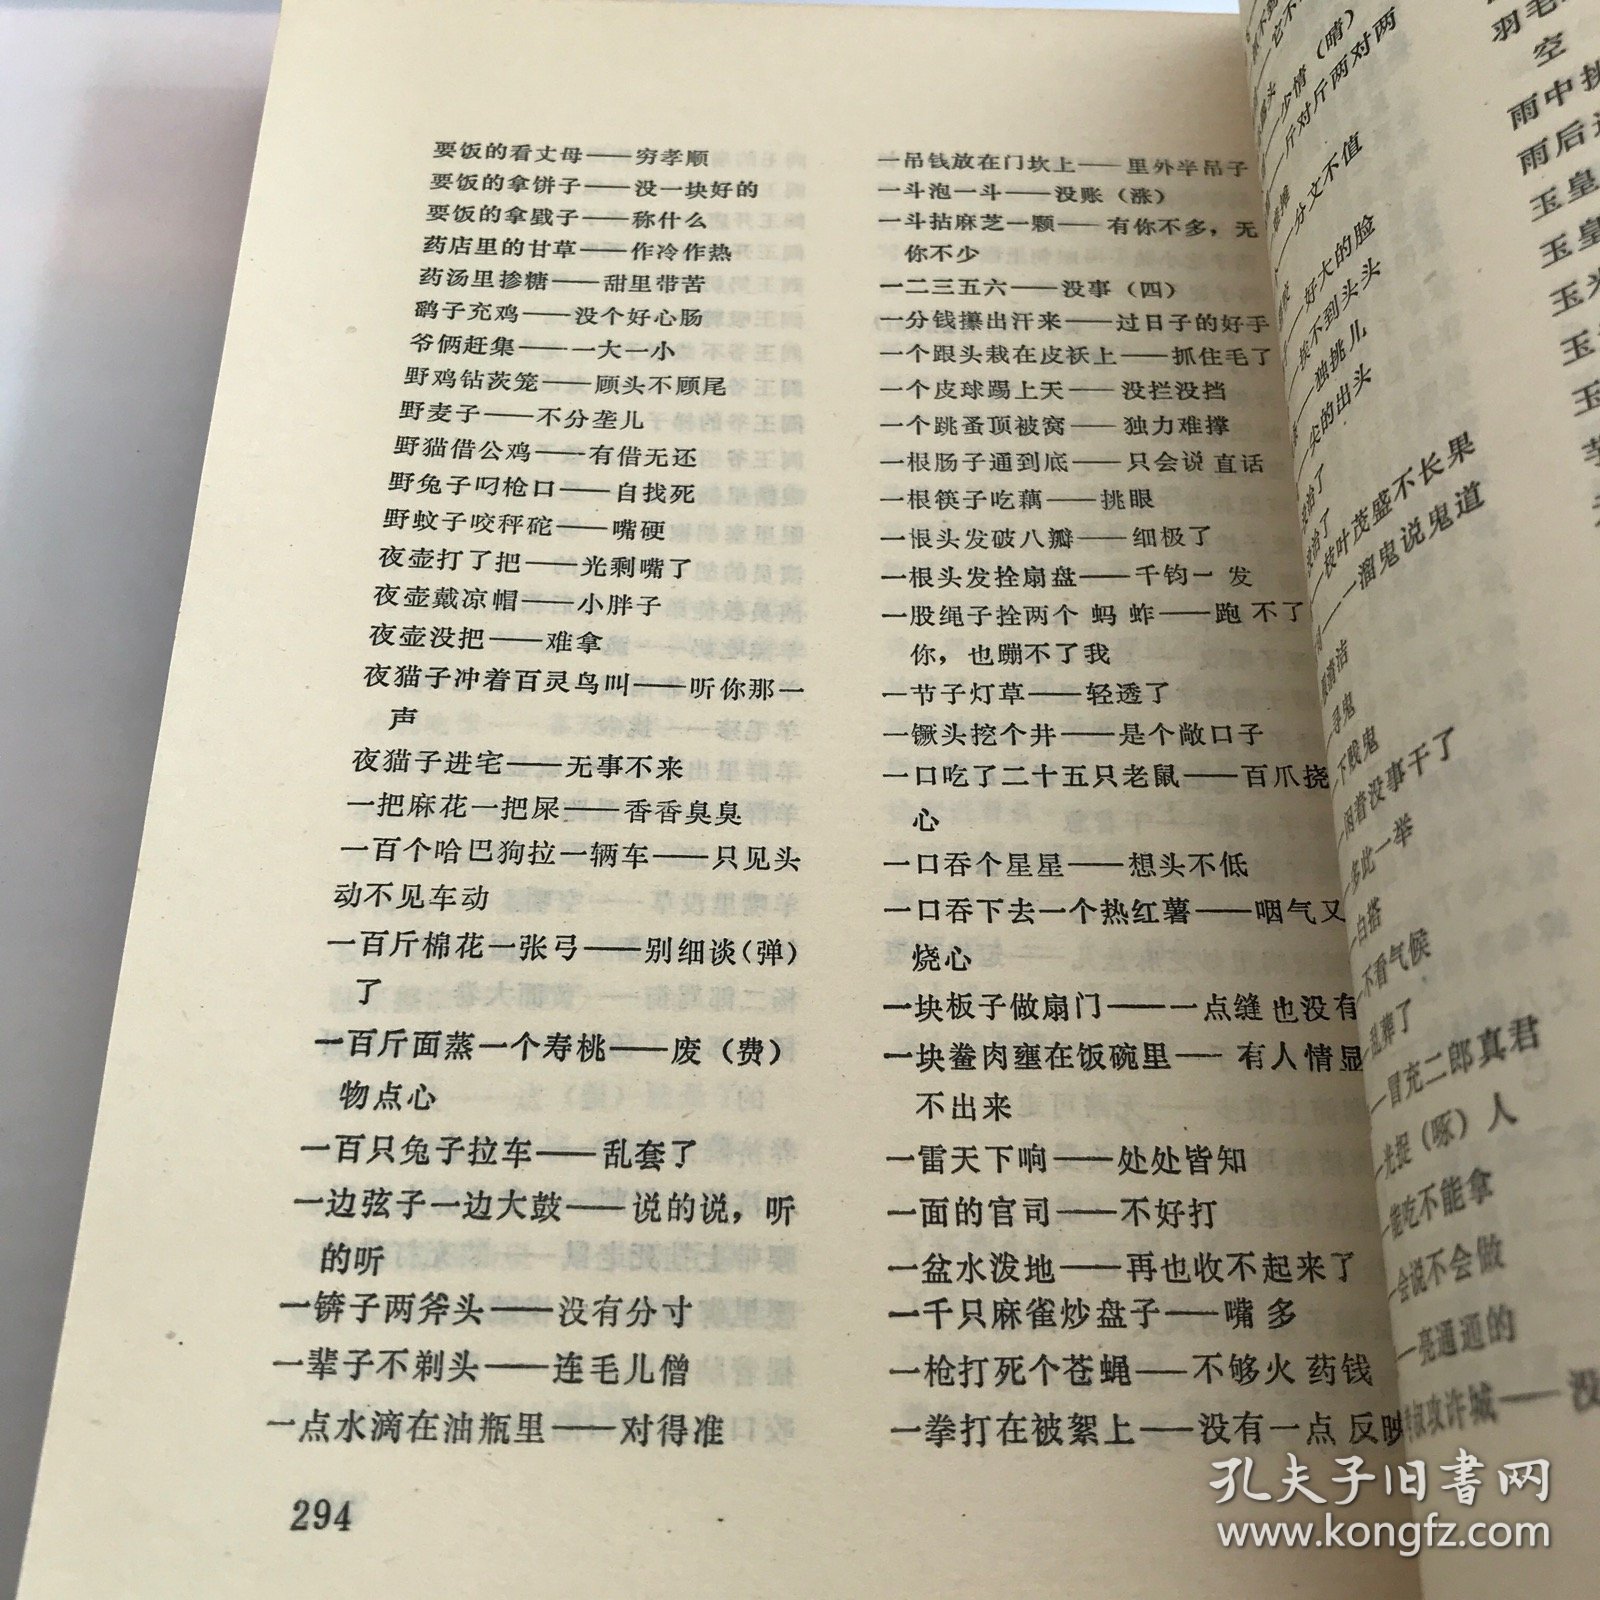 要饭的看丈母——穷孝顺
要饭的拿饼子——没一块好的
要饭的拿戥子——称什么
药店里的甘草——作冷作热
药汤里掺糖——甜里带苦
鹞子充鸡——没个好心肠
爷俩赶集——一大一小
野鸡钻茨笼——顾头不顾尾
野麦子——不分垄儿
野猫借公鸡——有借无还
野兔子叼枪口——自找死
野蚊子咬秤砣——嘴硬
夜壶打了把——光剩嘴了
夜壶戴凉帽——小胖子
夜壶没把——难拿
夜猫子冲着百灵鸟叫——听你那一
声
夜猫子进宅——无事不来
一把麻花一把屎——香香臭臭
一百个哈巴狗拉一辆车——只见头
动不见车动
一百斤棉花一张弓——别细谈（弹）
了
一百斤面蒸一个寿桃——废（费）
物点心
一百只兔子拉车——乱套了
一边弦子一边大鼓——说的说，听
的听
一锛子两斧头——没有分寸
一辈子不剃头——连毛儿僧
一点水滴在油瓶里——对得准
294
一吊钱放在门坎上——里外半吊子
一斗泡一斗——没账（涨）
一斗拈麻芝一颗——有你不多，无
你不少
一二三五六——没事（四）
一分钱攥出汗来——过日子的好手
一个跟头栽在皮袄上——抓住毛了
一个皮球踢上天——没拦没挡
一个跳蚤顶被窝——独力难撑
一根肠子通到底——只会说直话
一根筷子吃藕——挑眼
一根头发破八瓣——细极了
一根头发拴扇盘——千钧一发
一股绳子拴两个蚂蚱——跑不了
你，也蹦不了我
一节子灯草——轻透了
一镢头挖个井——是个敞口子
一口吃了二十五只老鼠——百爪挠
心
一口吞个星星——想头不低
一口吞下去一个热红薯——咽气又
烧心
一块板子做扇门——一点缝也没有
一块鲞肉壅在饭碗里——有人情显
不出来
一雷天下响——处处皆知
一面的官司——不好打
一盆水泼地——再也收不起来了
一千只麻雀炒盘子——嘴多
一枪打死个苍蝇——不够火药钱
一拳打在被絮上——没有一点反映
少情（晴）
斤对斤两对两
分文不值
好大的脸
挨不到头头
独挑儿
尖的出头
枝叶茂盛不长果
溜鬼说鬼道
闲着没事干了
多此一举
白搭
不看气候
乱葬了
冒充二郎真君
光捉（啄）人
能吃不能拿
会说不会做
亮通通的
攻许城——没
羽毛
空
雨中挑
雨后
玉皇
玉皇
玉米
玉
玉
孔夫子旧书网
www.kongfz.com